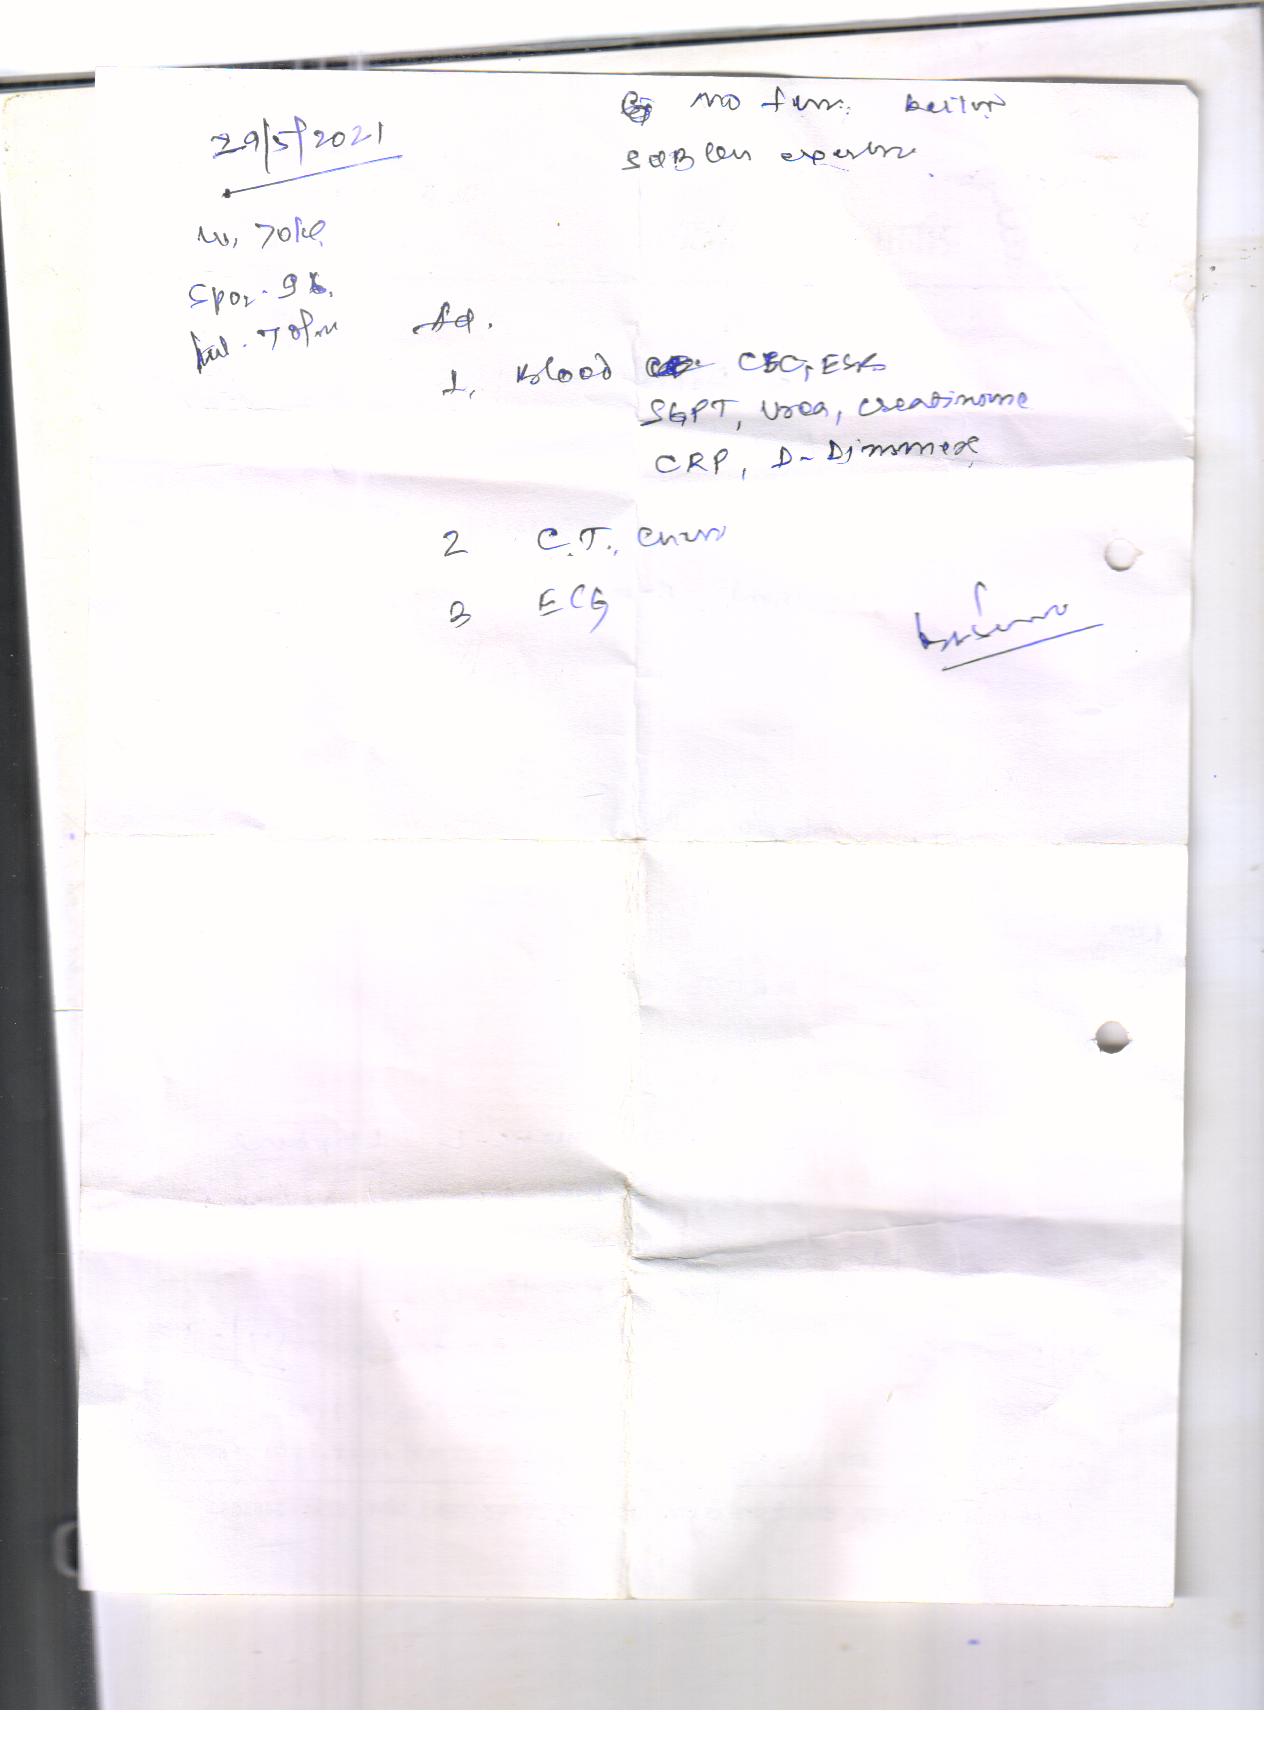 29/5/2021
No fever
SOB on exertion
W, 70kg
Spo2 - 9
Ad.
1, Blood CBC, ESR
SGPT, Urea, Creatinine
CRP, D-Dimmer
2 C.T. Chest
3 ECG